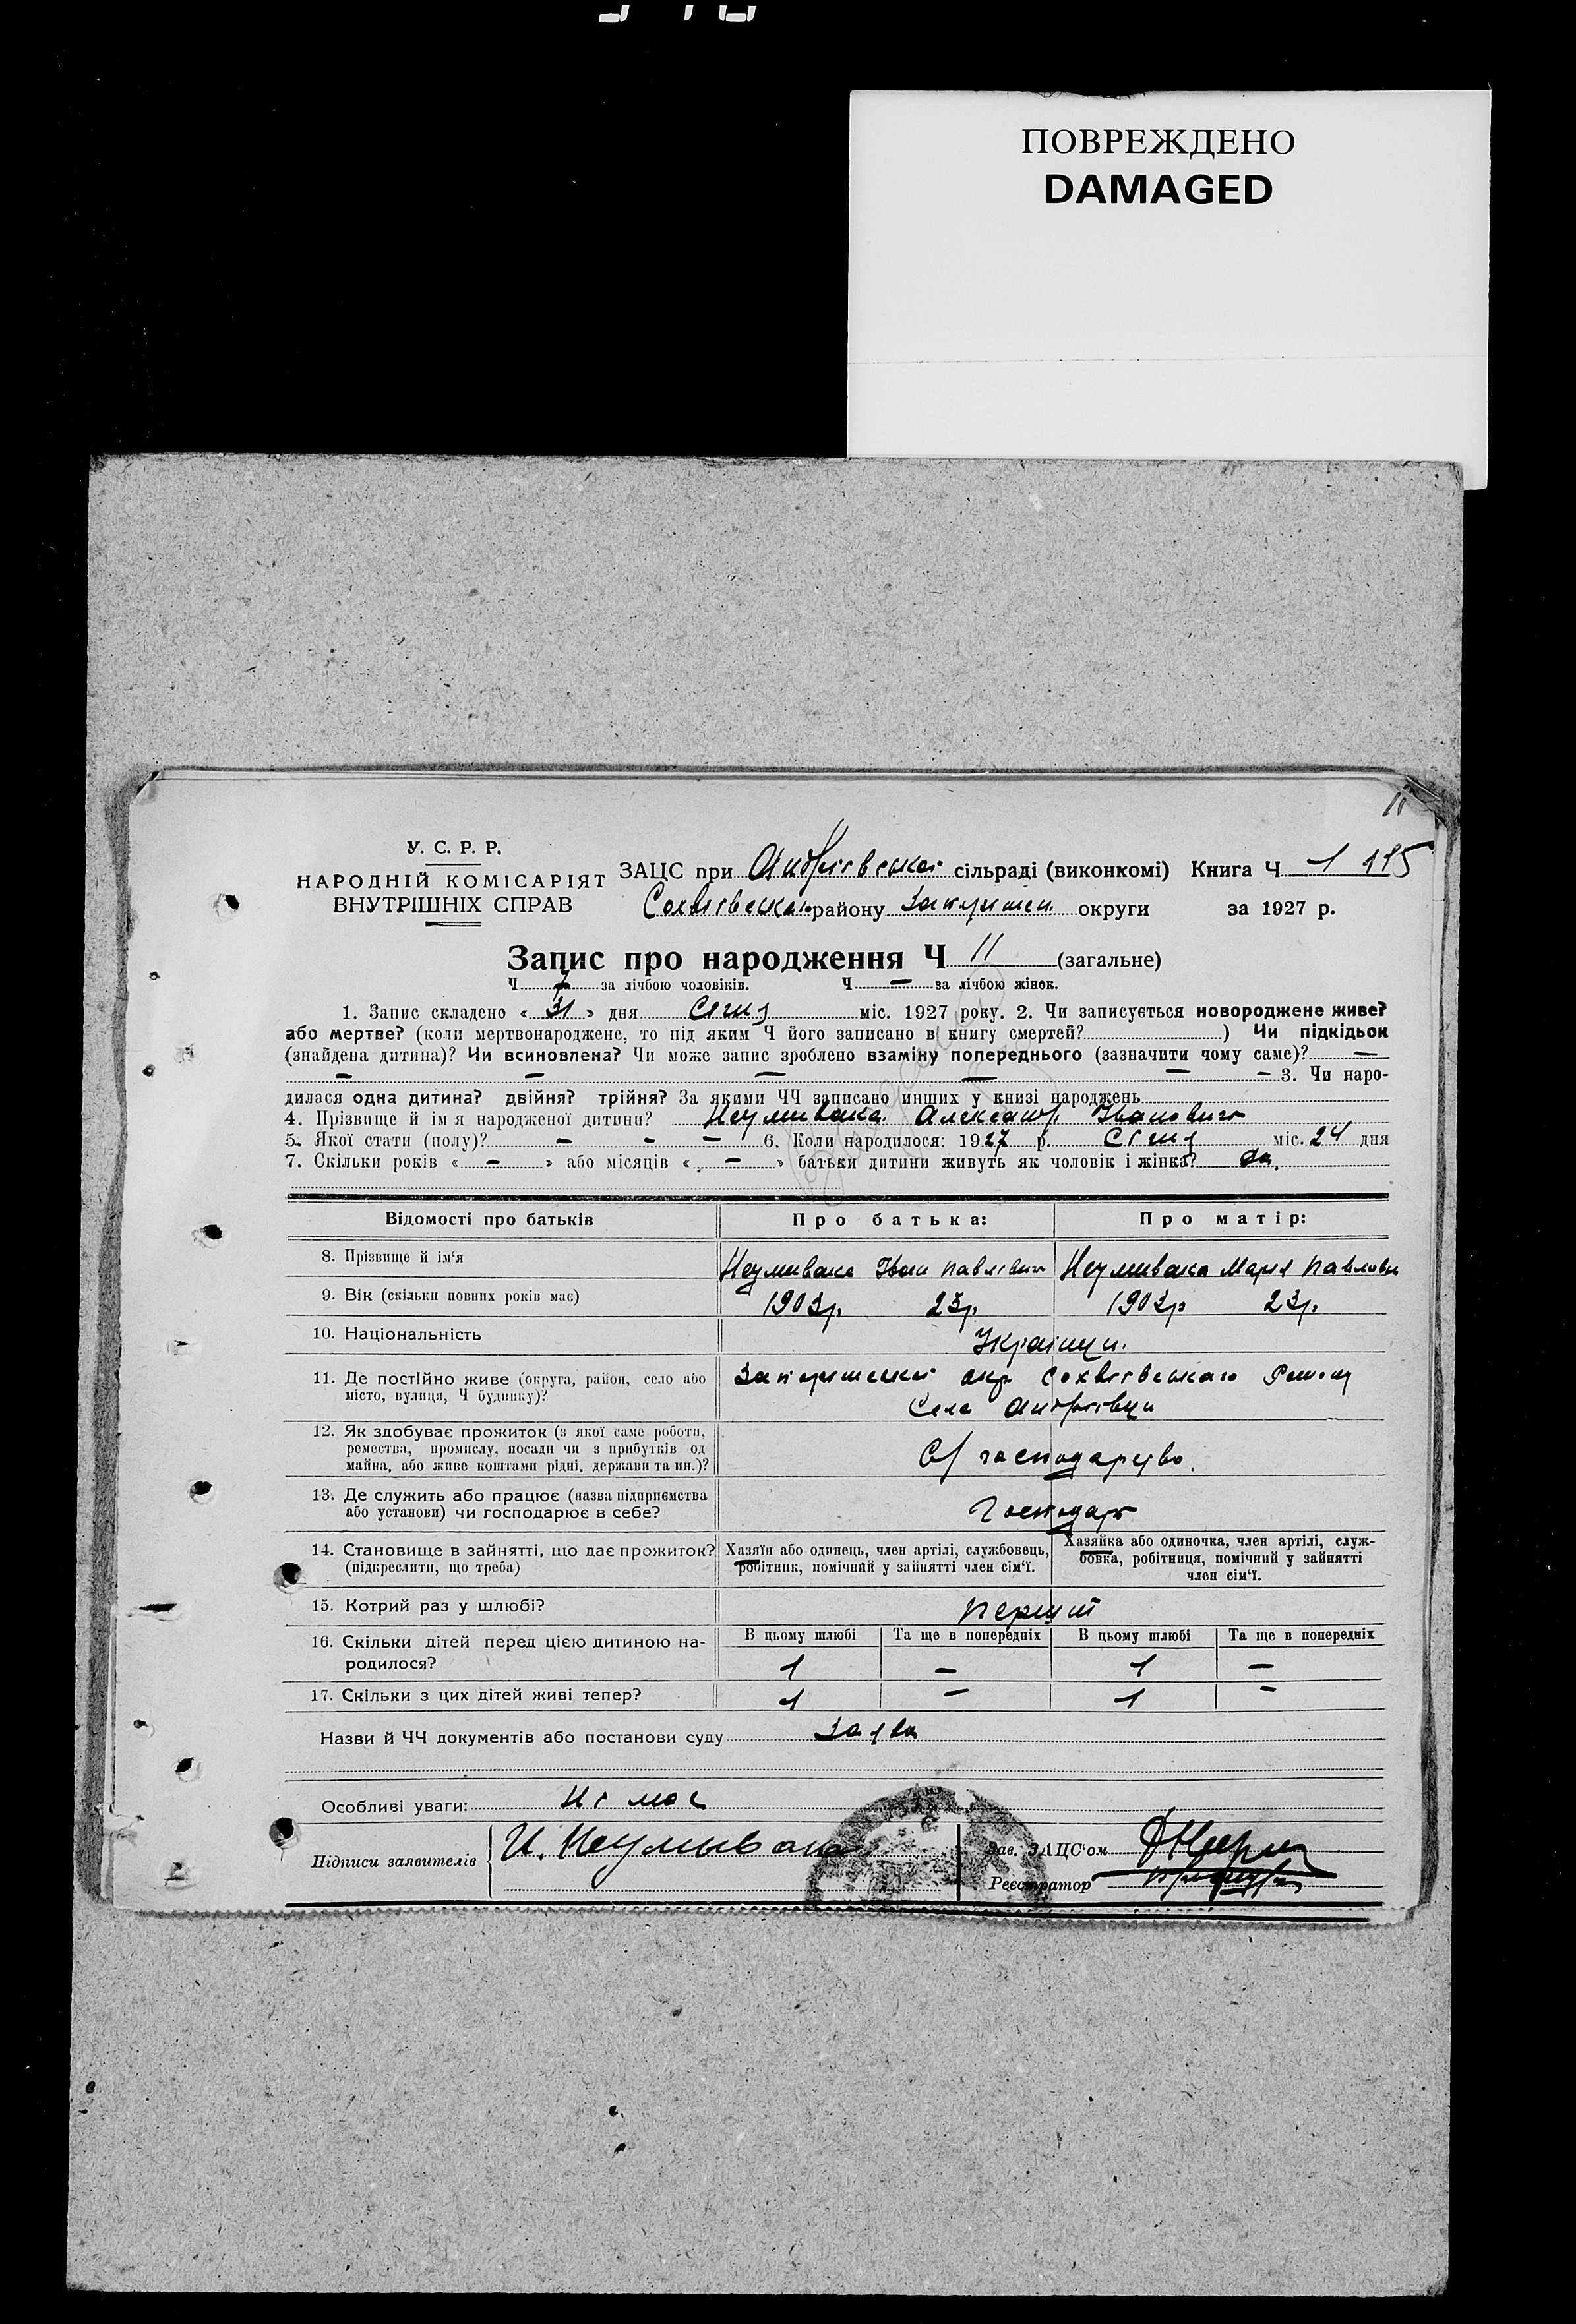 ПОВРЕЖДЕНО
DAMAGED
11
У. С. Р. Р.
НАРОДНІЙ КОМІСАРІЯТ
ВНУТРІШНІХ СПРАВ
ЗАЦС при Андріівській сільраді (виконкомі) Книга Ч 1 115
району округи за 1927 р.
Запис про народження Ч 11 (загальне)
Ч 7 за лічбою чоловіків. Ч — за лічбою жінок.
1. Запис складено « 31 » дня Січня міс. 1927 року. 2. Чи записується новороджене живе?
або мертве? (коли мертвонароджене, то під яким Ч його записано в книгу смертей? ) Чи підкідьок
(знайдена дитина)? Чи всиновлена? Чи може запис зроблено взаміну попереднього (зазначити чому саме)? —
— — — — — — 3. Чи наро-
дилася одна дитина? двійня? трійня? За якими ЧЧ записано инших у книзі народжень
4. Прізвище й ім'я народженої дитини? Неумивака Александр Іванович
5. Якої стати (полу)? — — — 6. Коли народилося: 1927 р. Січня міс. 24 дня
7. Скільки років « — » або місяців « — » батьки дитини живуть як чоловік і жінка? да.
Відомості про батьків Про батька: Про матір:
8. Прізвище й ім'я Неумивака Іван Павлович Неумивака Марія Павловн
9. Вік (скільки повних років має) 1903р. 23р. 1903р 23р.
10. Національність Українци.
11. Де постійно живе (округа, район, село або
місто, вулиця, Ч будинку)? окр Району
Села Андріівци
12. Як здобуває прожиток (з якої саме роботи,
ремества, промислу, посади чи з прибутків од
майна, або живе коштами рідні, держави та ин.)? С/господарство.
13. Де служить або працює (назва підприємства
або установи) чи господарює в себе? Господарт
14. Становище в зайнятті, що дає прожиток?
(підкреслити, що треба)
Хазяїн або одинець, член артілі, службовець,
робітник, помічний у зайнятті член сім'ї.
Хазяйка або одиночка, член артілі, служ-
бовка, робітниця, помічний у зайнятті
член сім'ї.
15. Котрий раз у шлюбі? перший
16. Скільки дітей перед цією дитиною на-
родилося?
В цьому шлюбі Та ще в попередніх В цьому шлюбі Та ще в попередніх
1 — 1 —
17. Скільки з цих дітей живі тепер? 1 — 1 —
Назви й ЧЧ документів або постанови суду Заява
Особливі уваги: Німає
Підписи заявителів И. Неумывака
Зав. ЗАЦС'ом
Реєстратор